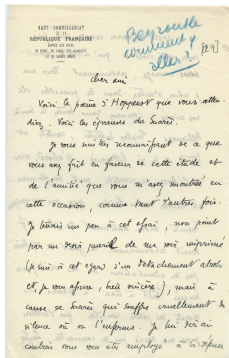 HAUT COMMISSARIAT
DE LA
RÉPUBLIQUE FRANÇAISE
Beyrouth
comment y
aller ?
Cher ami
Voici le poème d'Hoppenot que vous atten-
diez. Voici les épreuves du Suarès.
Je vous suis très reconnaissant de ce que
vous avez fait en faveur de cette étude et
de l'amitié que vous m'avez montrée en
cette occasion, comme tant d'autres fois.
Je tenais un peu à cet essai, non point
par un désir puéril de me voir imprimé
(je suis à cet égard d'un détachement absolu
et, je vous assure, bien sincère), mais à
cause de Suarès qui souffre cruellement du
silence où on l'enferme. Je lui dirai
combien vous vous êtes employé à la défense